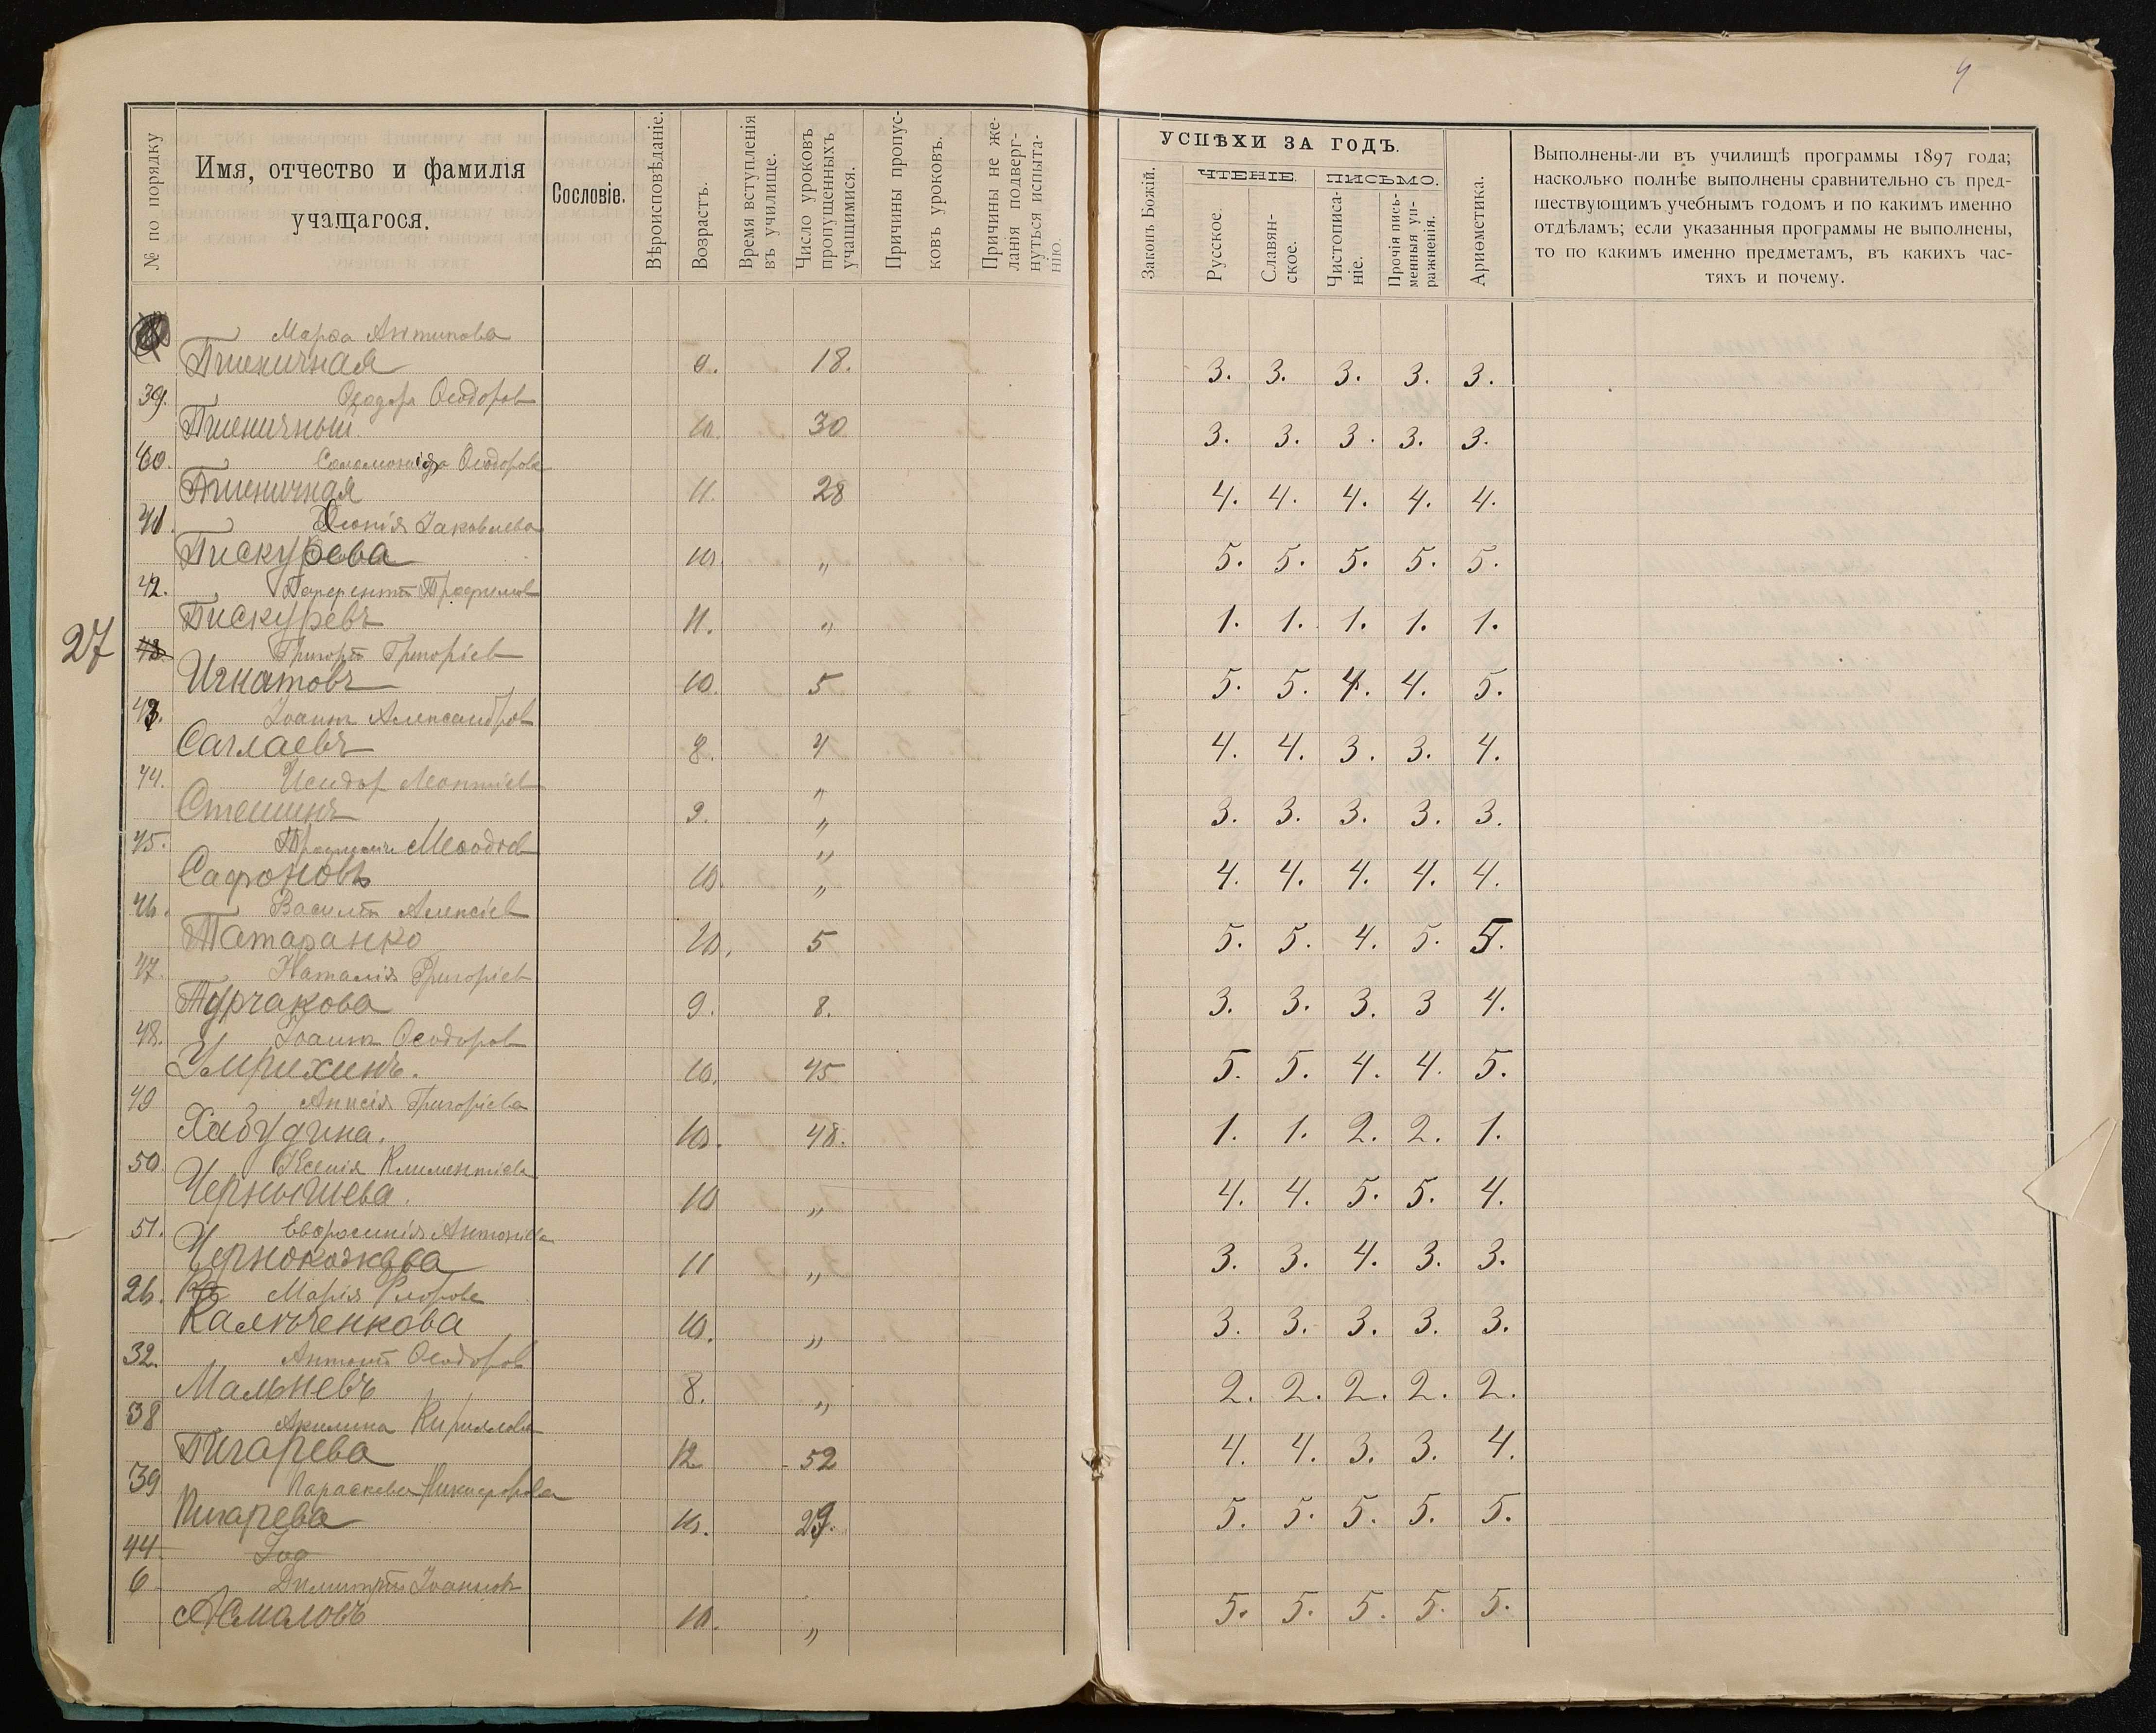 4
№ по порядку
Имя, отчество и фамилія
учащагося.
Сословіе.
Вѣроисповѣданіе.
Возрастъ.
Время вступленія
въ училище.
Число уроковъ
пропущенныхъ
учащимися.
Причины пропус-
ковъ уроковъ.
Причины не же-
ланія подверг-
нуться испыта-
нію.
УСПѢХИ ЗА ГОДЪ.
Законъ Божій.
ЧТЕНІЕ.
ПИСЬМО.
Русское.
Славян-
ское.
Чистописа-
ніе.
Прочія пись-
менныя уп-
ражненія.
Ариѳметика.
Выполнены-ли въ училищѣ программы 1897 года;
насколько полнѣе выполнены сравнительно съ пред-
шествующимъ учебнымъ годомъ и по какимъ именно
отдѣламъ; если указанныя программы не выполнены,
то по какимъ именно предметамъ, въ какихъ час-
тяхъ и почему.
Марѳа Антипова
Пшеничная 9. 18. 3. 3. 3. 3. 3.
39. Ѳеодоръ Ѳеодоров
Пшеничный. 10. 30 3. 3. 3. 3. 3.
40. Соломонида Ѳеодорова
Пшеничная 11. 28 4. 4. 4. 4. 4.
41. Іаковлева
Пискурева 10. „ 5. 5. 5. 5. 5.
42. Трофимов
Пискуревъ 11. „ 1. 1. 1. 1. 1.
27 Григорій Григоріев
Игнатовъ 10. 5 5. 5. 4. 4. 5.
43. Іоаннъ Александров
Саглаевъ 8. 4 4. 4. 3. 3. 4.
44. Исидор Леонтіев „
Стешинъ 9. „ 3. 3. 3. 3. 3.
45. Меѳодіев „
Сафоновъ 10. „ 4. 4. 4. 4. 4.
46. Василій Алексіев
Татаранко 10. 5 5. 5. 4. 5. 5.
47. Наталія Григоріев
Турчакова 9. 8. 3. 3. 3. 3 4.
48. Іоаннъ Ѳеодоров
Умрихинъ. 10. 45 5. 5. 4. 4. 5.
49 Анисія Григоріева
Хабудина. 10. 48. 1. 1. 2. 2. 1.
50. Ксенія Климентіева
Чернышева. 10 „ 4. 4. 5. 5. 4.
51. Евфросинія Антоніева
Чернокожева 11 „ 3. 3. 4. 3. 3.
26. Марія Флорова
Калюченкова 10. „ 3. 3. 3. 3. 3.
32. Антоній Ѳеодоров
Мальневъ 8. „ 2. 2. 2. 2. 2.
38 Акилина Кириллова
Пигарева 12 52 4. 4. 3. 3. 4.
39 Параскева Никифорова
Пигарева 10. 29. 5. 5. 5. 5. 5.
44. Іоа
6. Димитрій Іоаннов
Асмаловъ 10. „ 5. 5. 5. 5. 5.